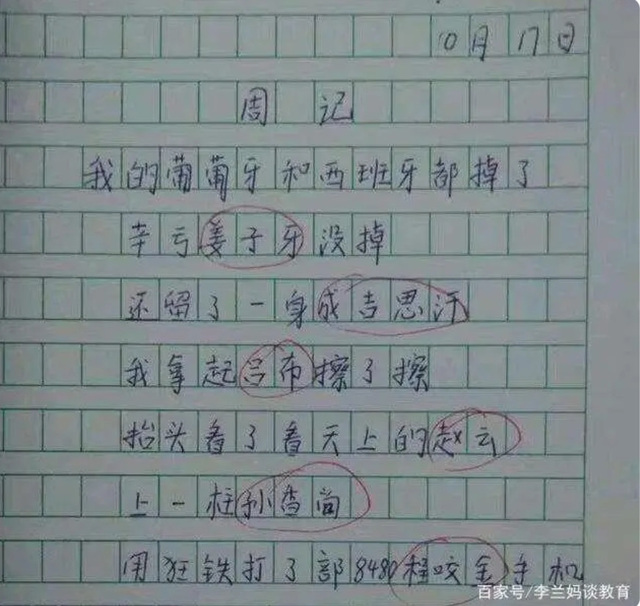 10月17日
周记
我的葡萄牙和西班牙都掉了
辛亏姜子牙没掉
还留了一身成吉思汗
我拿起吕布擦了擦
抬头看了看天上的赵云
上一柱孙尚
用狂铁打了部8480程咬金手机
百家号/李兰妈谈教育